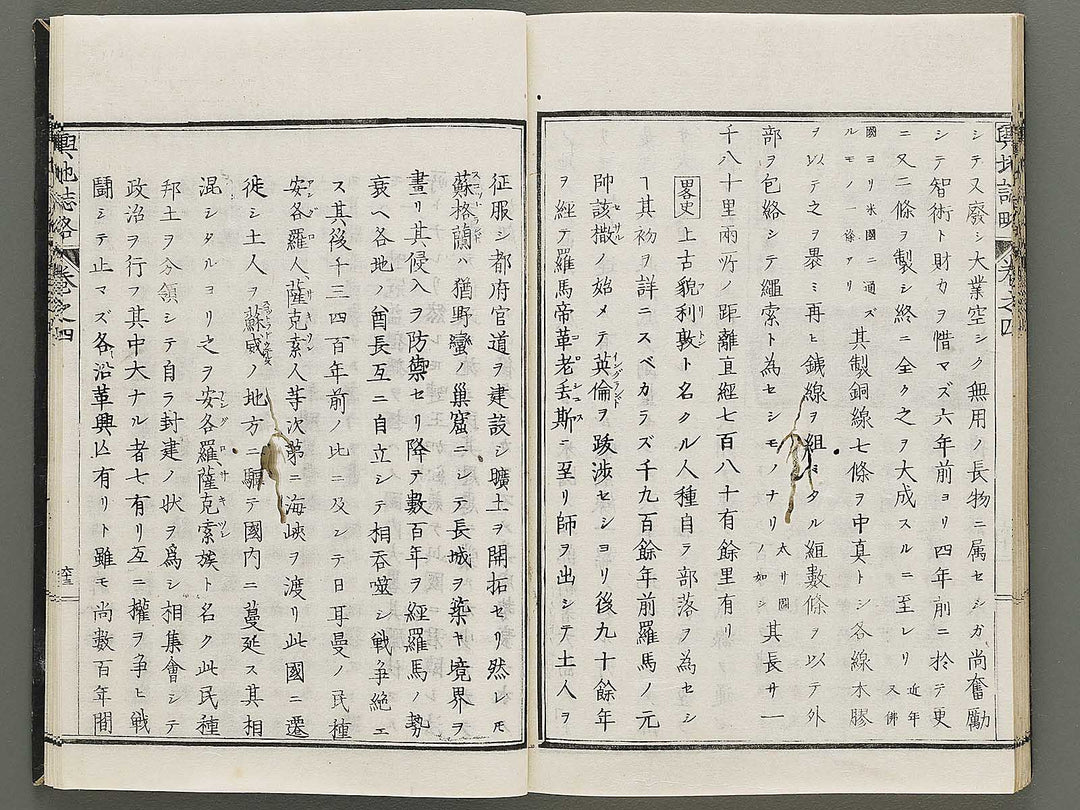 輿地誌略 卷之四
シテ又廢シ大業空シク無用ノ長物ニ属セシガ尚奮勵
シテ智術ト財力ヲ惜マズ六年前ヨリ四年前ニ於テ更
ニ又二條ヲ製シ終ニ全ク之ヲ大成スルニ至レリ 近年又佛
國ヨリ米國ニ通ズルモノ一條アリ 其製銅線七條ヲ中真トシ各線木膠
ヲ以テ之ヲ褁ミ再ヒ鐵線ヲ組ミタル組數條ヲ以テ外
部ヲ包絡シテ繩索ト為セシモノナリ 太サ圖ノ如シ 其長サ一
千八十里兩所ノ距離直經七百八十有餘里有リ
畧史 上古貌利敦ブリトント名クル人種自ラ部落ヲ為セシ
ヿ其初ヲ詳ニスベカラズ千九百餘年前羅馬ノ元
帥該撒セサルノ始メテ英倫イングランドヲ跋渉セシヨリ後九十餘年
ヲ經テ羅馬帝革老丢斯ニ至リ師ヲ出シテ土人ヲ
征服シ都府官道ヲ建設シ曠土ヲ開拓セリ然レ𪜈
蘇格蘭スコットランドハ猶野蠻ノ巢窟ニシテ長城ヲ築キ境界ヲ
畫リ其侵入ヲ防禦セリ降テ數百年ヲ經羅馬ノ勢
衰ヘ各地ノ酋長互ニ自立シテ相呑噬シ戦争絶エ
ス其後千三四百年前ノ此ニ及ンテ日耳曼ノ民種
安各羅アングロ人薩克索サキソン人等次第ニ海峡ヲ渡リ此國ニ遷
徙シ土人ヲ蘇威ノ地方ニ驅テ國内ニ蔓延ス其相
混シタルヨリ之ヲ安各羅薩克索アングロサキソン族ト名ク此民種
邦土ヲ分領シテ自ラ封建ノ状ヲ爲シ相集會シテ
政治ヲ行フ其中大ナル者七有リ互ニ權ヲ争ヒ戦
鬪シテ止マズ各沿革興亡有リト雖モ尚數百年間
輿地誌略 卷之四